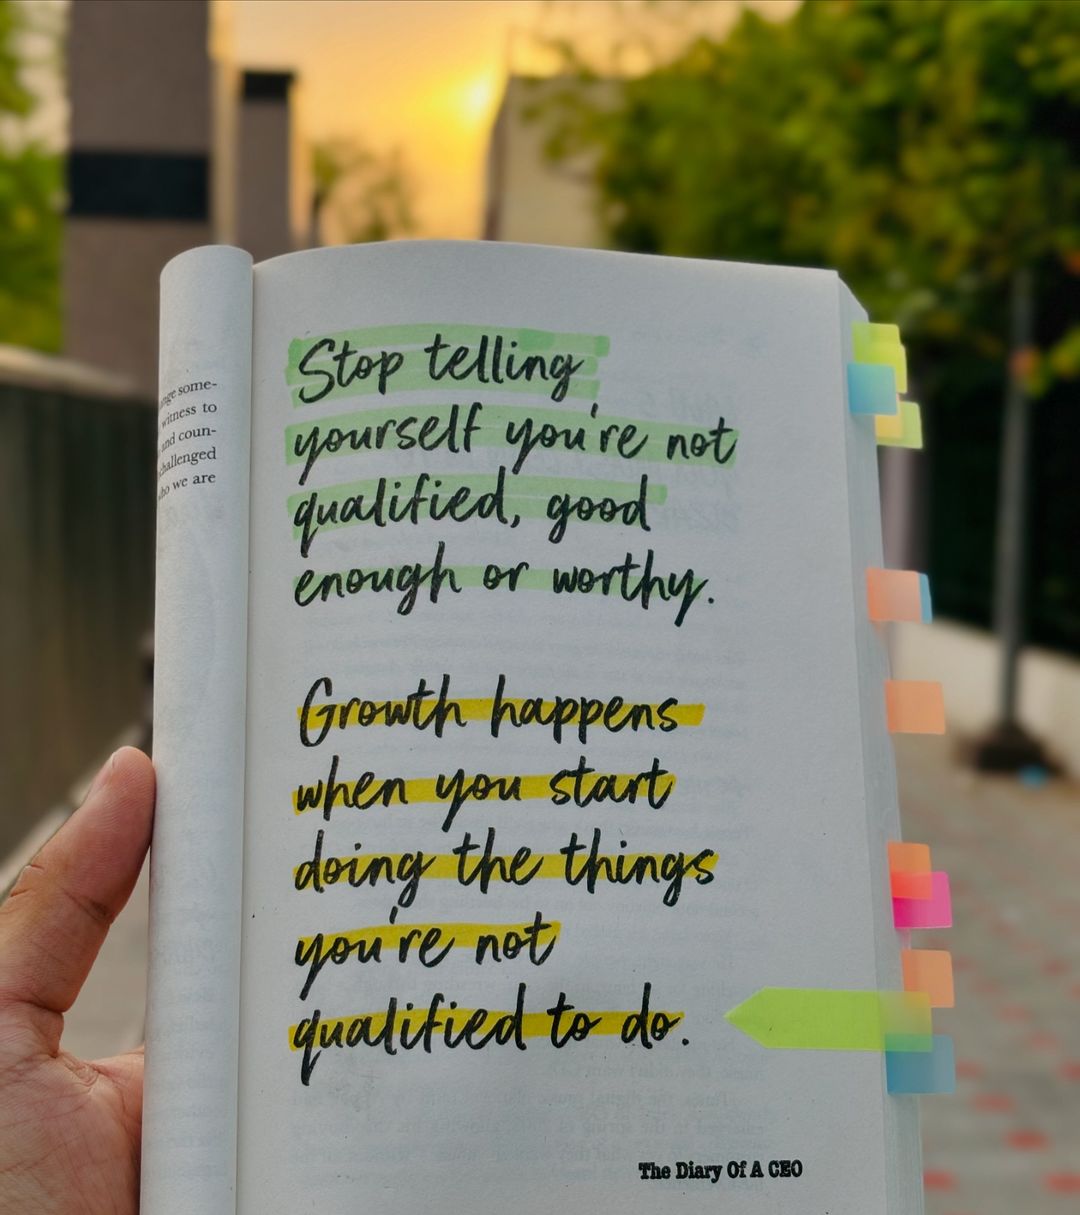 some-
witness to
and coun-
challenged
who we are
Stop telling
yourself you're not
qualified, good
enough or worthy.
Growth happens
when you start
doing the things
you're not
qualified to do.
The Diary Of A CEO